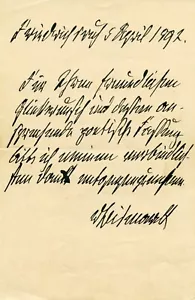 Friedrichsruh 5 April 1892.
Für Ihren freundlichen
Glückwunsch und dessen an-
sprechende poetische Fassung
bitte ich meinen verbindlich-
sten Dank entgegenzunehmen.
vBismarck